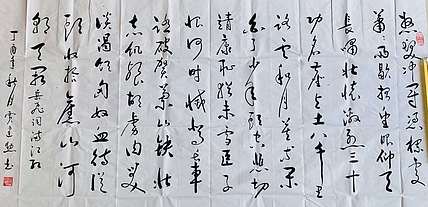 怒髮冲冠憑欄處
瀟瀟雨歇抬望眼仰天
長嘯壯懷激烈三十
功名塵與土八千里
路雲和月莫等閑
白了少年頭空悲切
靖康恥猶未雪臣子
恨何時滅駕長車
踏破賀蘭山缺壯
志飢餐胡虜肉笑
談渴飲匈奴血待從
頭收拾舊山河
朝天闕 岳飛詞滿江紅
丁酉年秋月